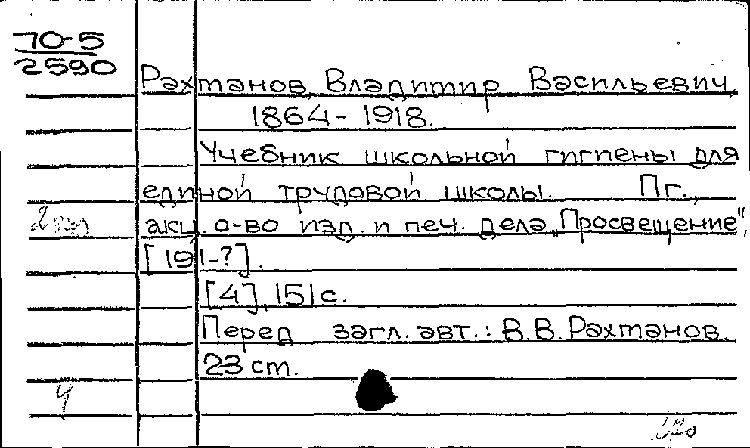 70-5
2590
Рахтанов, Владимир Васильевич,
1864-1918.
Учебник школьной гигиены для
единой трудовой школы. Пг.,
акц. о-во изд. и печ. дела „Просвещение",
[191-?].
[4], 151 с.
Перед загл. авт.: В.В. Рахтанов.
23 cm.